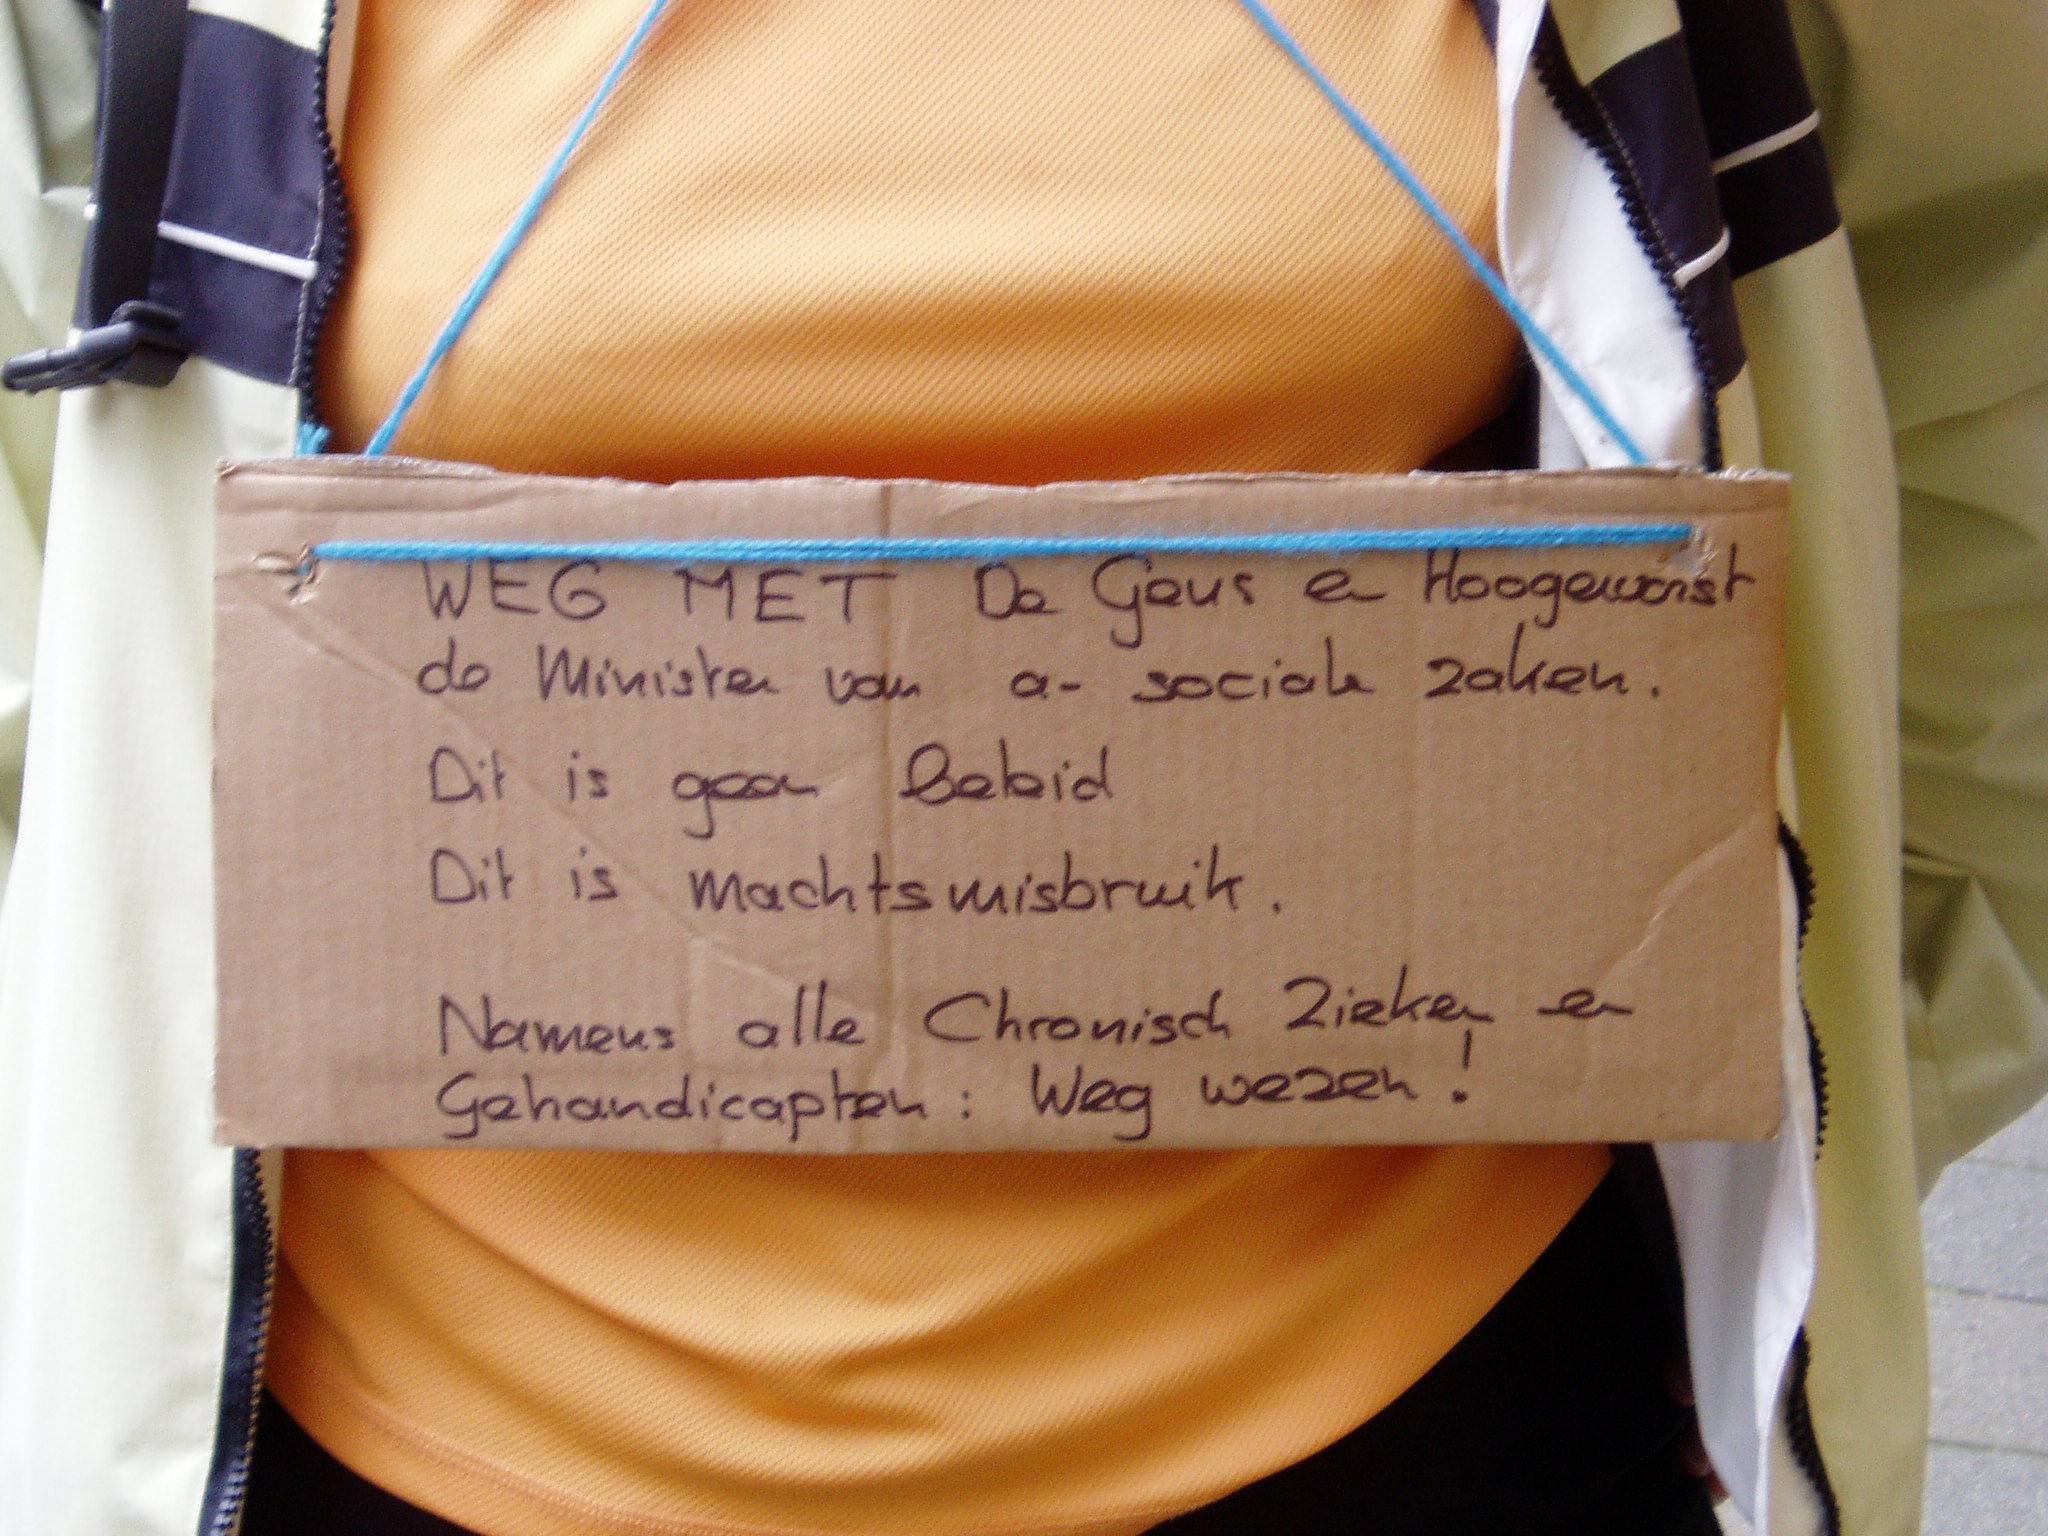 WEG MET De Geus en Hoogeworst
de Minister van a- sociale zaken.
Dit is geen Beleid
Dit is machtsmisbruik.
Namens alle Chronisch Zieken en
Gehandicapten: Weg wezen!